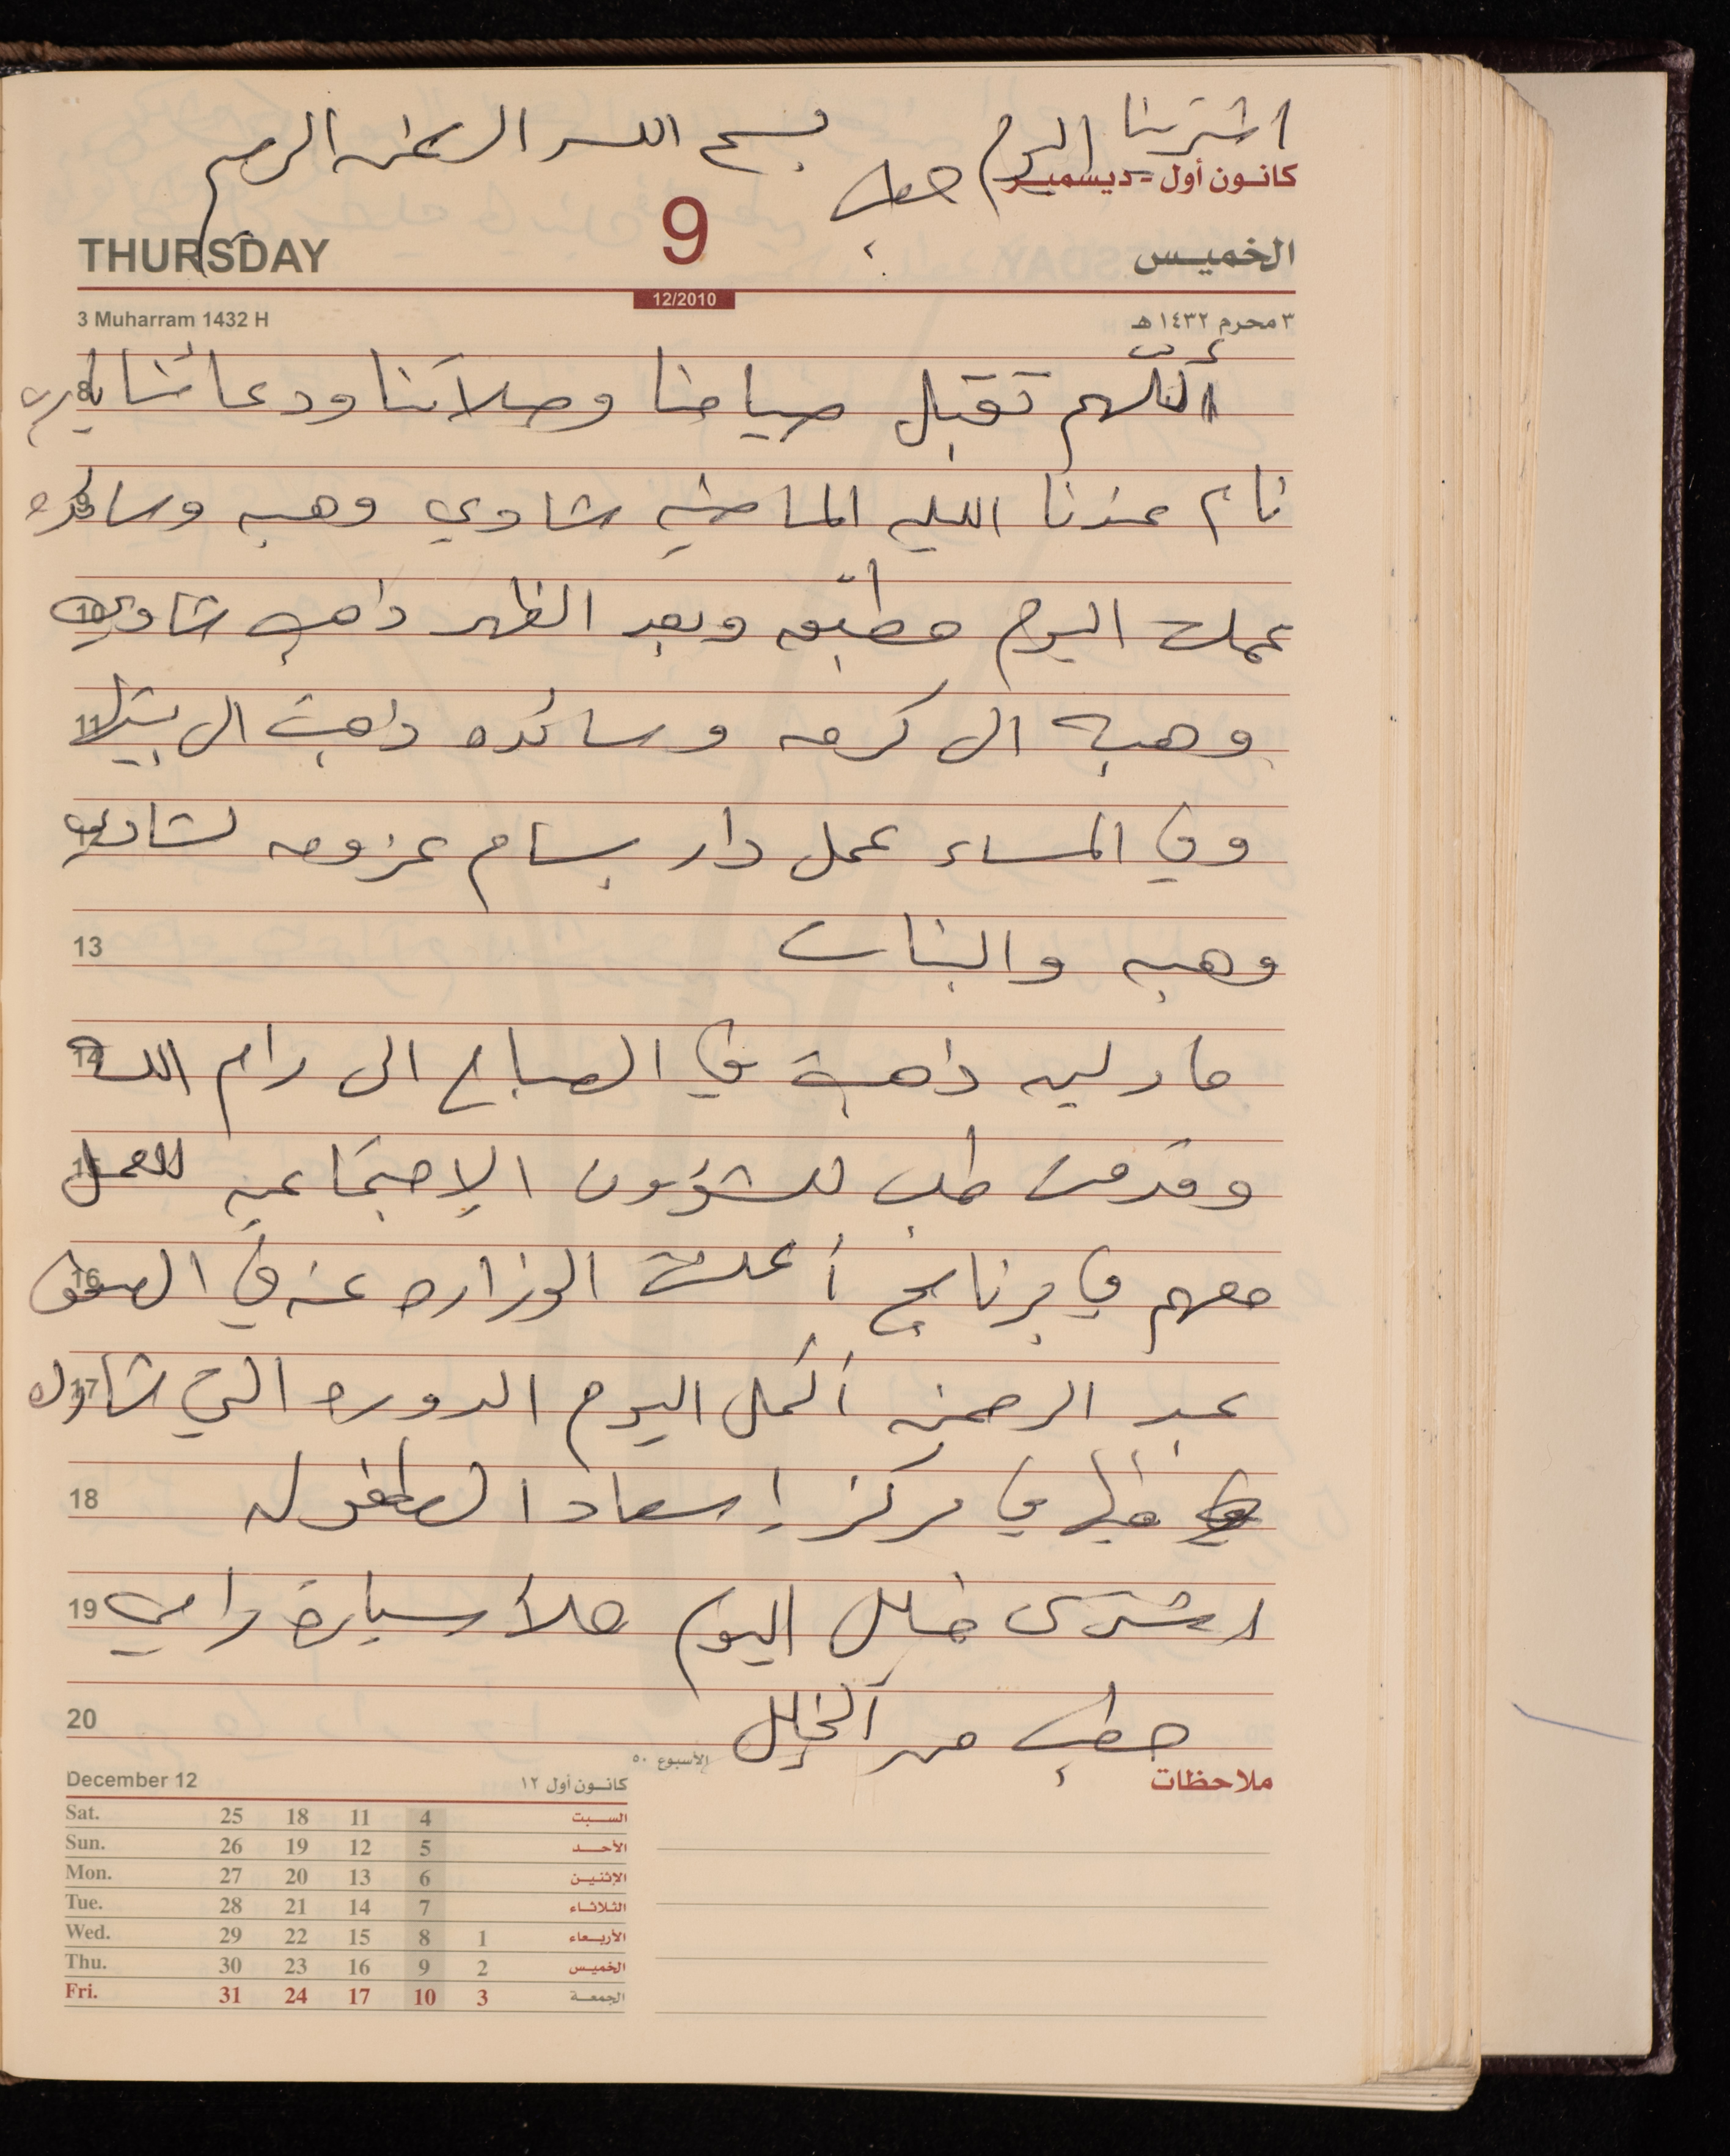 اشترينا اليوم حطب
بسم الله الرحمن الرحيم
كانون أول - ديسمبر
THURSDAY 9 الخميس
12/2010
3 Muharram 1432 H ٣ محرم ١٤٣٢ هـ
أللّهم تقبل صيامنا وصلاتنا ودعائنا يا رب
8
نام عندنا الليله الماضيه شاوي وهبه وسائده
9
عملت اليوم مطبّقه وبعد الظهر ذاهب شاوي
10
وهبه الى كرمه وسائده ذاهبت الى بيتها
11
وفي المساء عمل دار بسام عزومه لشاوي
وهبه والبنات
13
مادلين ذاهبة في الصباح الى رام الله
14
وقدمت طلب للشؤون الإجتماعيه للعمل
15
معهم في برنامج أعلنت الوزاره عنه في الصحف
16
عبد الرحمن أكمل اليوم الدوره التي شارك
17
في مركز إسعاد الطفوله
18
اشترى خليل اليوم ملأ سيارة رامي
19
حطب من الخليل
20
ملاحظات
الأسبوع ٥٠
December 12 كانون أول ١٢
Sat. 25 18 11 4 السبت
Sun. 26 19 12 5 الأحد
Mon. 27 20 13 6 الإثنين
Tue. 28 21 14 7 الثلاثاء
Wed. 29 22 15 8 1 الأربعاء
Thu. 30 23 16 9 2 الخميس
Fri. 31 24 17 10 3 الجمعة